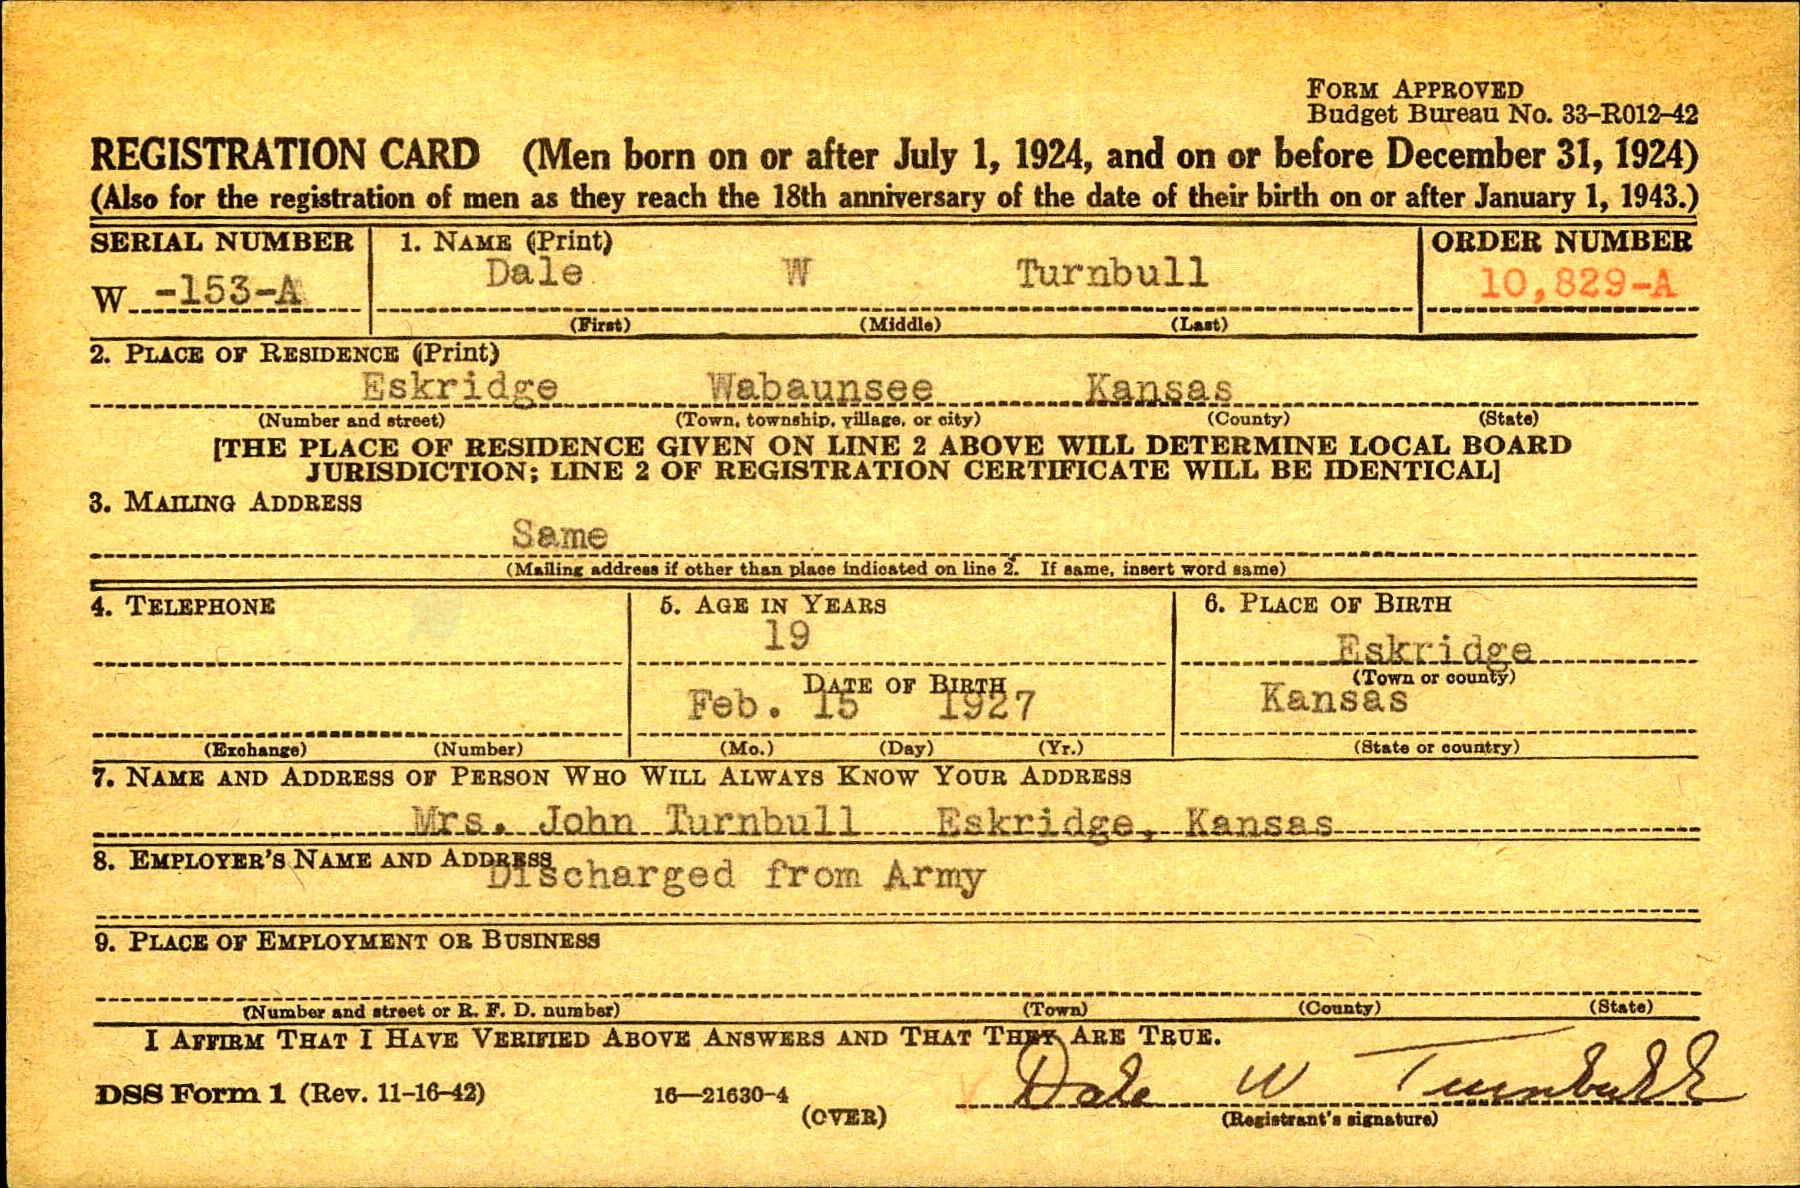 FORM APPROVED
Budget Bureau No. 33-R012-42
REGISTRATION CARD (Men born on or after July 1, 1924, and on or before December 31, 1924)
(Also for the registration of men as they reach the 18th anniversary of the date of their birth on or after January 1, 1943.)
SERIAL NUMBER 1. NAME (Print) ORDER NUMBER
W -153-A Dale W Turnbull 10,829-A
(First) (Middle) (Last)
2. PLACE OF RESIDENCE (Print)
Eskridge Wabaunsee Kansas
(Number and street) (Town, township, village, or city) (County) (State)
[THE PLACE OF RESIDENCE GIVEN ON LINE 2 ABOVE WILL DETERMINE LOCAL BOARD
JURISDICTION; LINE 2 OF REGISTRATION CERTIFICATE WILL BE IDENTICAL]
3. MAILING ADDRESS
Same
(Mailing address if other than place indicated on line 2. If same, insert word same)
4. TELEPHONE 5. AGE IN YEARS 6. PLACE OF BIRTH
19 Eskridge
(Town or county)
DATE OF BIRTH
Feb. 15 1927 Kansas
(Exchange) (Number) (Mo.) (Day) (Yr.) (State or country)
7. NAME AND ADDRESS OF PERSON WHO WILL ALWAYS KNOW YOUR ADDRESS
Mrs. John Turnbull Eskridge, Kansas
8. EMPLOYER'S NAME AND ADDRESS
Discharged from Army
9. PLACE OF EMPLOYMENT OR BUSINESS
(Number and street or R. F. D. number) (Town) (County) (State)
I AFFIRM THAT I HAVE VERIFIED ABOVE ANSWERS AND THAT THEY ARE TRUE.
DSS Form 1 (Rev. 11-16-42) 16—21630-4 Dale W Turnbull
(OVER) (Registrant's signature)